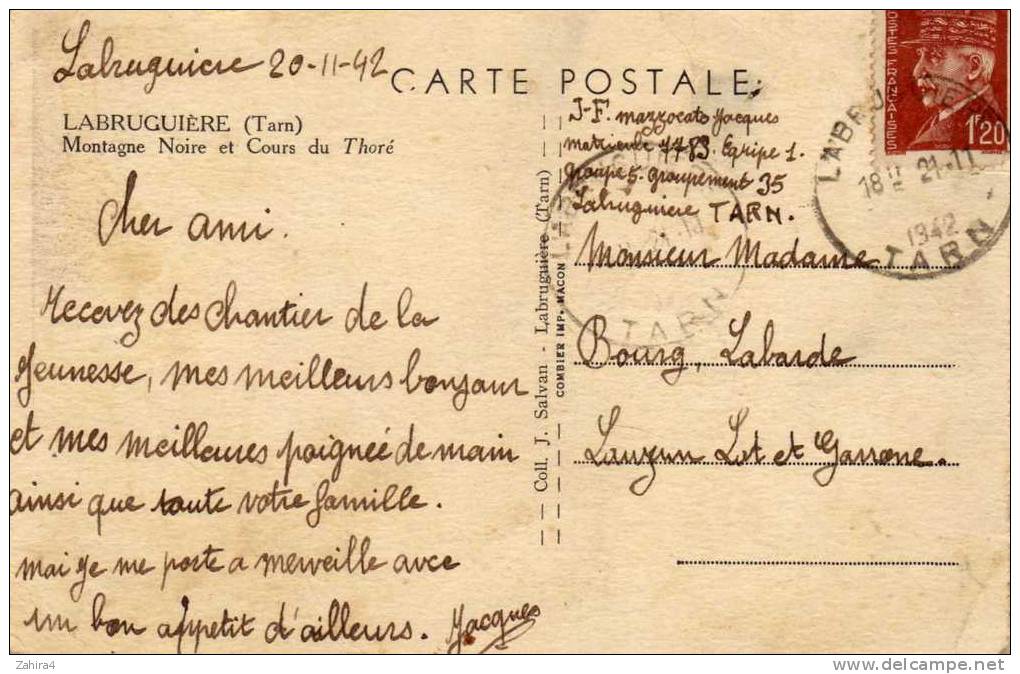 Labruguiere 20-11-42
CARTE POSTALE
LABRUGUIÈRE (Tarn)
Montagne Noire et Cours du Thoré
Cher ami.
Recevez des chantier de la
Jeunesse, mes meilleurs bonjour
et mes meilleures poigneé de main
ainsi que toute votre famille.
mai je me porte a merveille avec
un bon appetit d'ailleurs. Jacques
Coll. J. Salvan - Labruguière (Tarn)
COMBIER IMP. MACON
J-F. mazzocato Jacques
matricule 7783. Equipe 1.
groupe 5. groupement 35
Labruguiere TARN.
Monsieur Madame
Bourg, Labarde
Lauzun Lot et Garrone.
POSTES FRANÇAISES
1F20
LABRU
18H 21-11
1942
TARN
TARN
Zahira4
www.delcampe.net